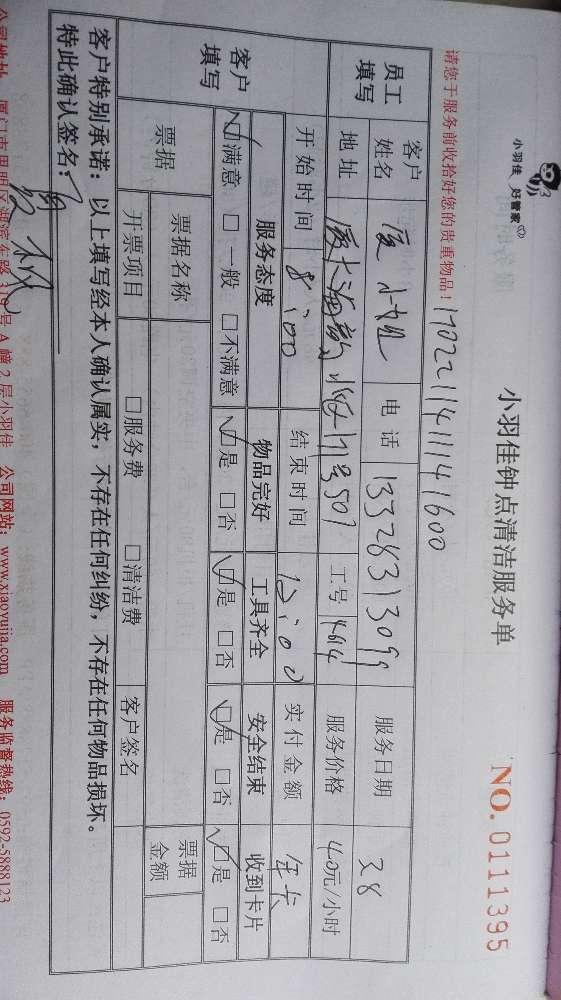 小羽佳 好管家
小羽佳钟点清洁服务单
NO. 0111395
请您于服务前收拾好您的贵重物品！
员工填写
客户姓名
小姐
电话
13328313099
服务日期
28
地址
501
工号
1464
服务价格
40元/小时
开始时间
8:00
结束时间
12:00
实付金额
年卡
客户填写
服务态度
物品完好
工具齐全
安全结束
收到卡片
☑满意 □一般 □不满意
☑是 □否
☑是 □否
☑是 □否
☑是 □否
票据
票据名称
票据金额
开票项目
□服务费 □清洁费
客户签名
客户特别承诺：以上填写经本人确认属实，不存在任何纠纷，不存在任何物品损坏。
特此确认签名：
公司地址：厦门市思明区湖滨东路319号A幢2层小羽佳 公司网站：www.xiaoyujia.com 服务监督热线：0592-5888123